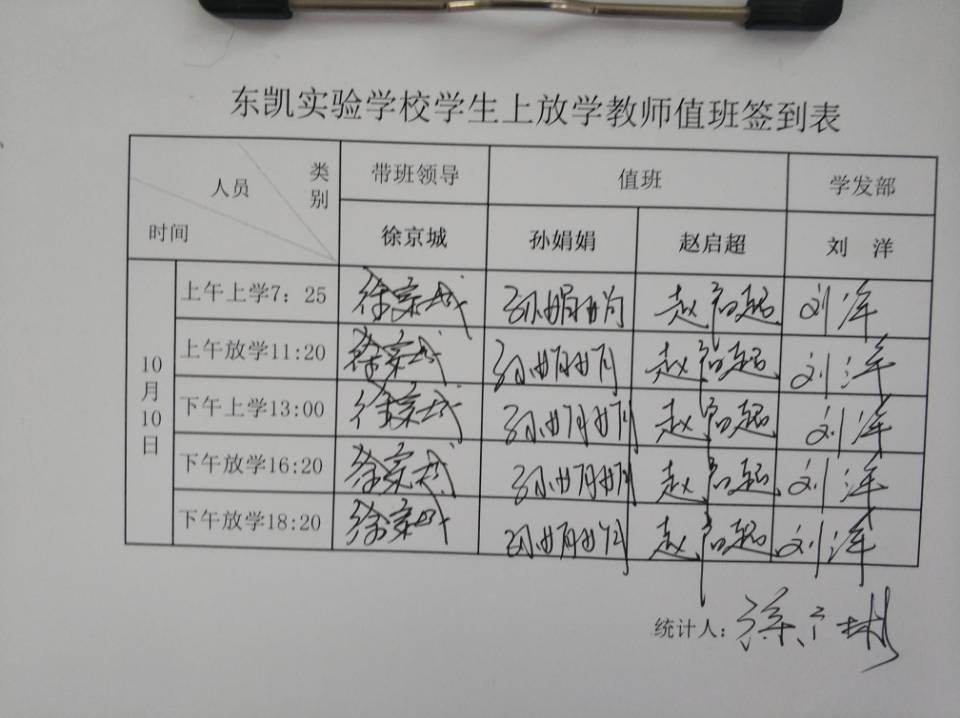 东凯实验学校学生上放学教师值班签到表
人员 类别 时间 带班领导 值班 学发部
徐京城 孙娟娟 赵启超 刘 洋
10月10日
上午上学7：25 徐京城 孙娟娟 赵启超 刘洋
上午放学11:20 徐京城 孙娟娟 赵启超 刘洋
下午上学13:00 徐京城 孙娟娟 赵启超 刘洋
下午放学16:20 徐京城 孙娟娟 赵启超 刘洋
下午放学18:20 徐京城 孙娟娟 赵启超 刘洋
统计人：